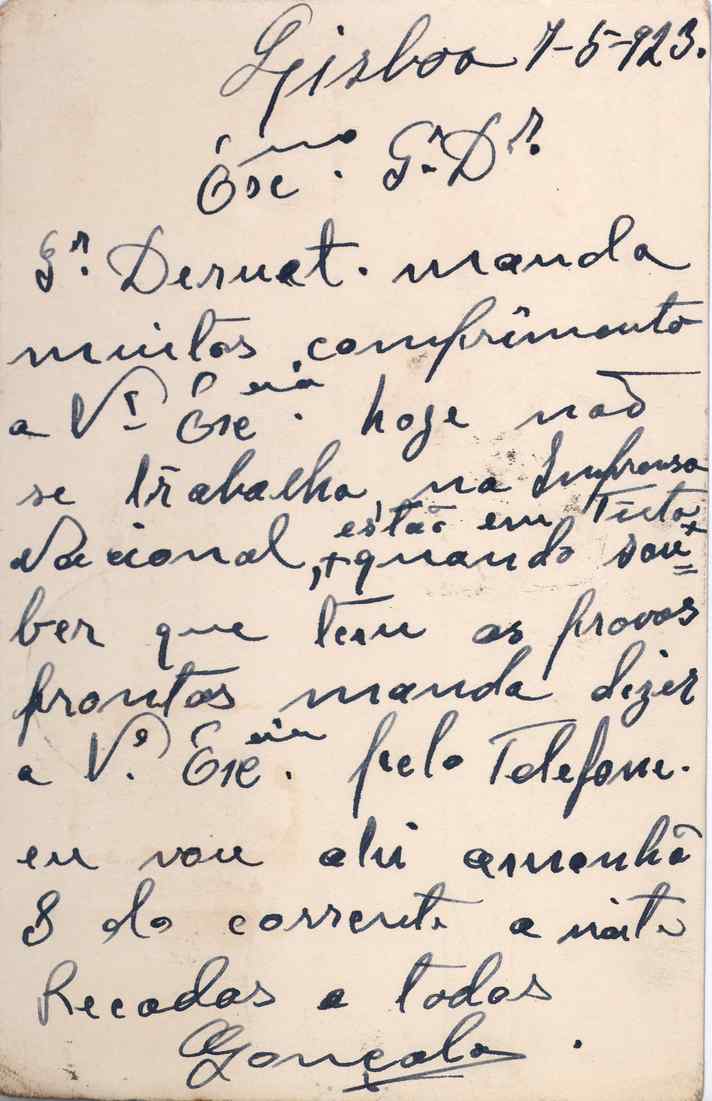 Lisboa 7-5-923.
Exmo. Sr. Dr.
Sr. Dernat. manda
muitos comprîmento
a Vª Exma. hoge não
se trabalha, na Imprensa
estão em
Nacional, + quando sou=
ber que tem as provas
prontas manda dizer
a Vª. Exma. pelo Telefone.
eu vou ahi amanhã
8 do corrente a noite
Recados a todos
Gonçalo.